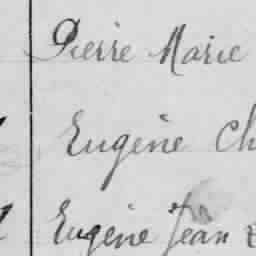 Pierre Marie
Eugène Ch
Eugène Jean